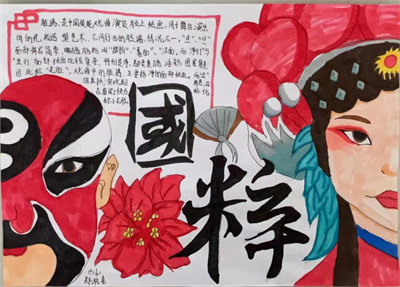 脸谱，是中国传统戏曲演员脸上的绘画，用于舞台演出
时的化妆造型艺术。不同行当的脸谱，情况不一。"生"、"旦"
面部妆容简单，略施脂粉，叫"俊扮"、"素面"、"洁面"。而"净行"与
"丑行"面部绘画比较复杂，特别是净，都是重施油彩的，图案复杂，
因此称"花脸"。戏曲中的脸谱，主要指净的面部绘画。而"丑"
因其扮演戏剧
在鼻梁上抹
國
粹